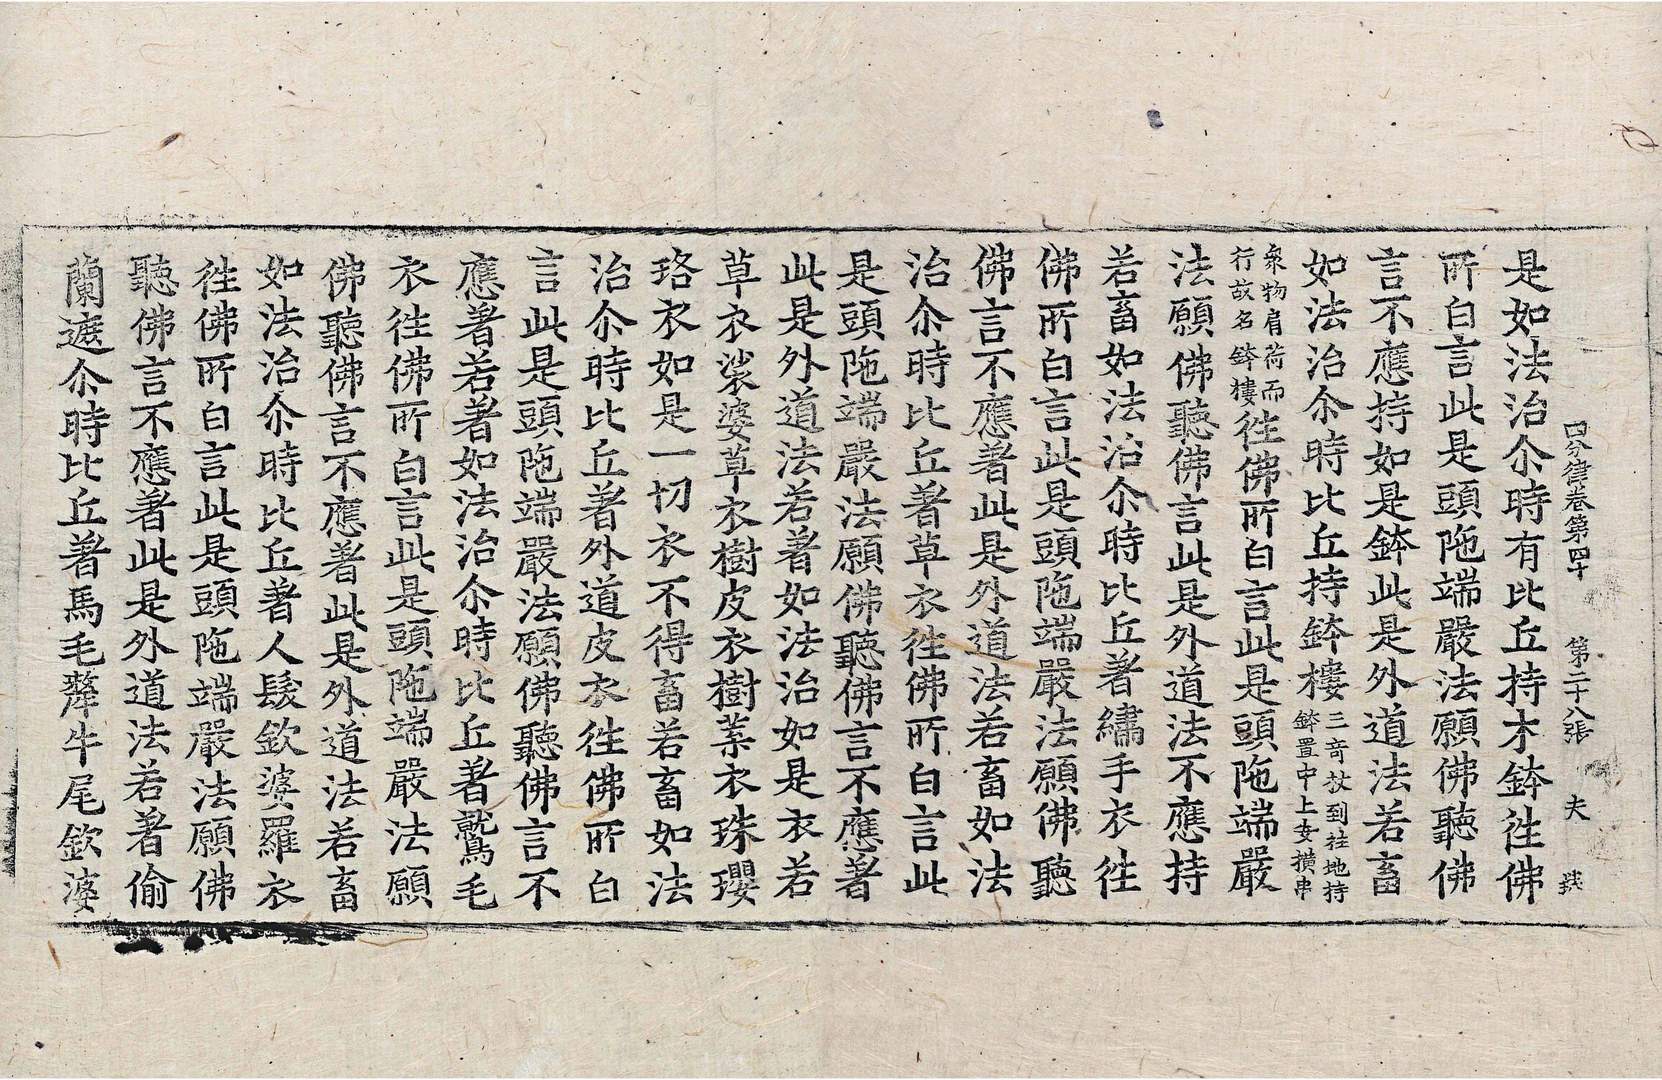 四分律卷第四十 第二十八張 夫
是如法治尒時有比丘持木鉢徃佛
所白言此是頭陁端嚴法願佛聽佛
言不應持如是鉢此是外道法若畜
如法治尒時比丘持鉢樓三奇杖到拄地持鉢置中上安撗串
衆物肩荷而行故名鉢樓徃佛所白言此是頭陁端嚴
法願佛聽佛言此是外道法不應持
若畜如法治尒時比丘著繡手衣徃
佛所白言此是頭陁端嚴法願佛聽
佛言不應著此是外道法若畜如法
治尒時比丘著草衣徃佛所白言此
是頭陁端嚴法願佛聽佛言不應著
此是外道法若著如法治如是衣若
草衣裟婆草衣樹皮衣樹葉衣珠瓔
珞衣如是一切衣不得畜若畜如法
治尒時比丘著外道皮衣徃佛所白
言此是頭陁端嚴法願佛聽佛言不
應著若著如法治尒時比丘著鷲毛
衣徃佛所白言此是頭陁端嚴法願
佛聽佛言不應著此是外道法若畜
如法治尒時比丘著人髮欽婆羅衣
徃佛所白言此是頭陁端嚴法願佛
聽佛言不應著此是外道法若著偷
蘭遮尒時比丘著馬毛犛牛尾欽婆